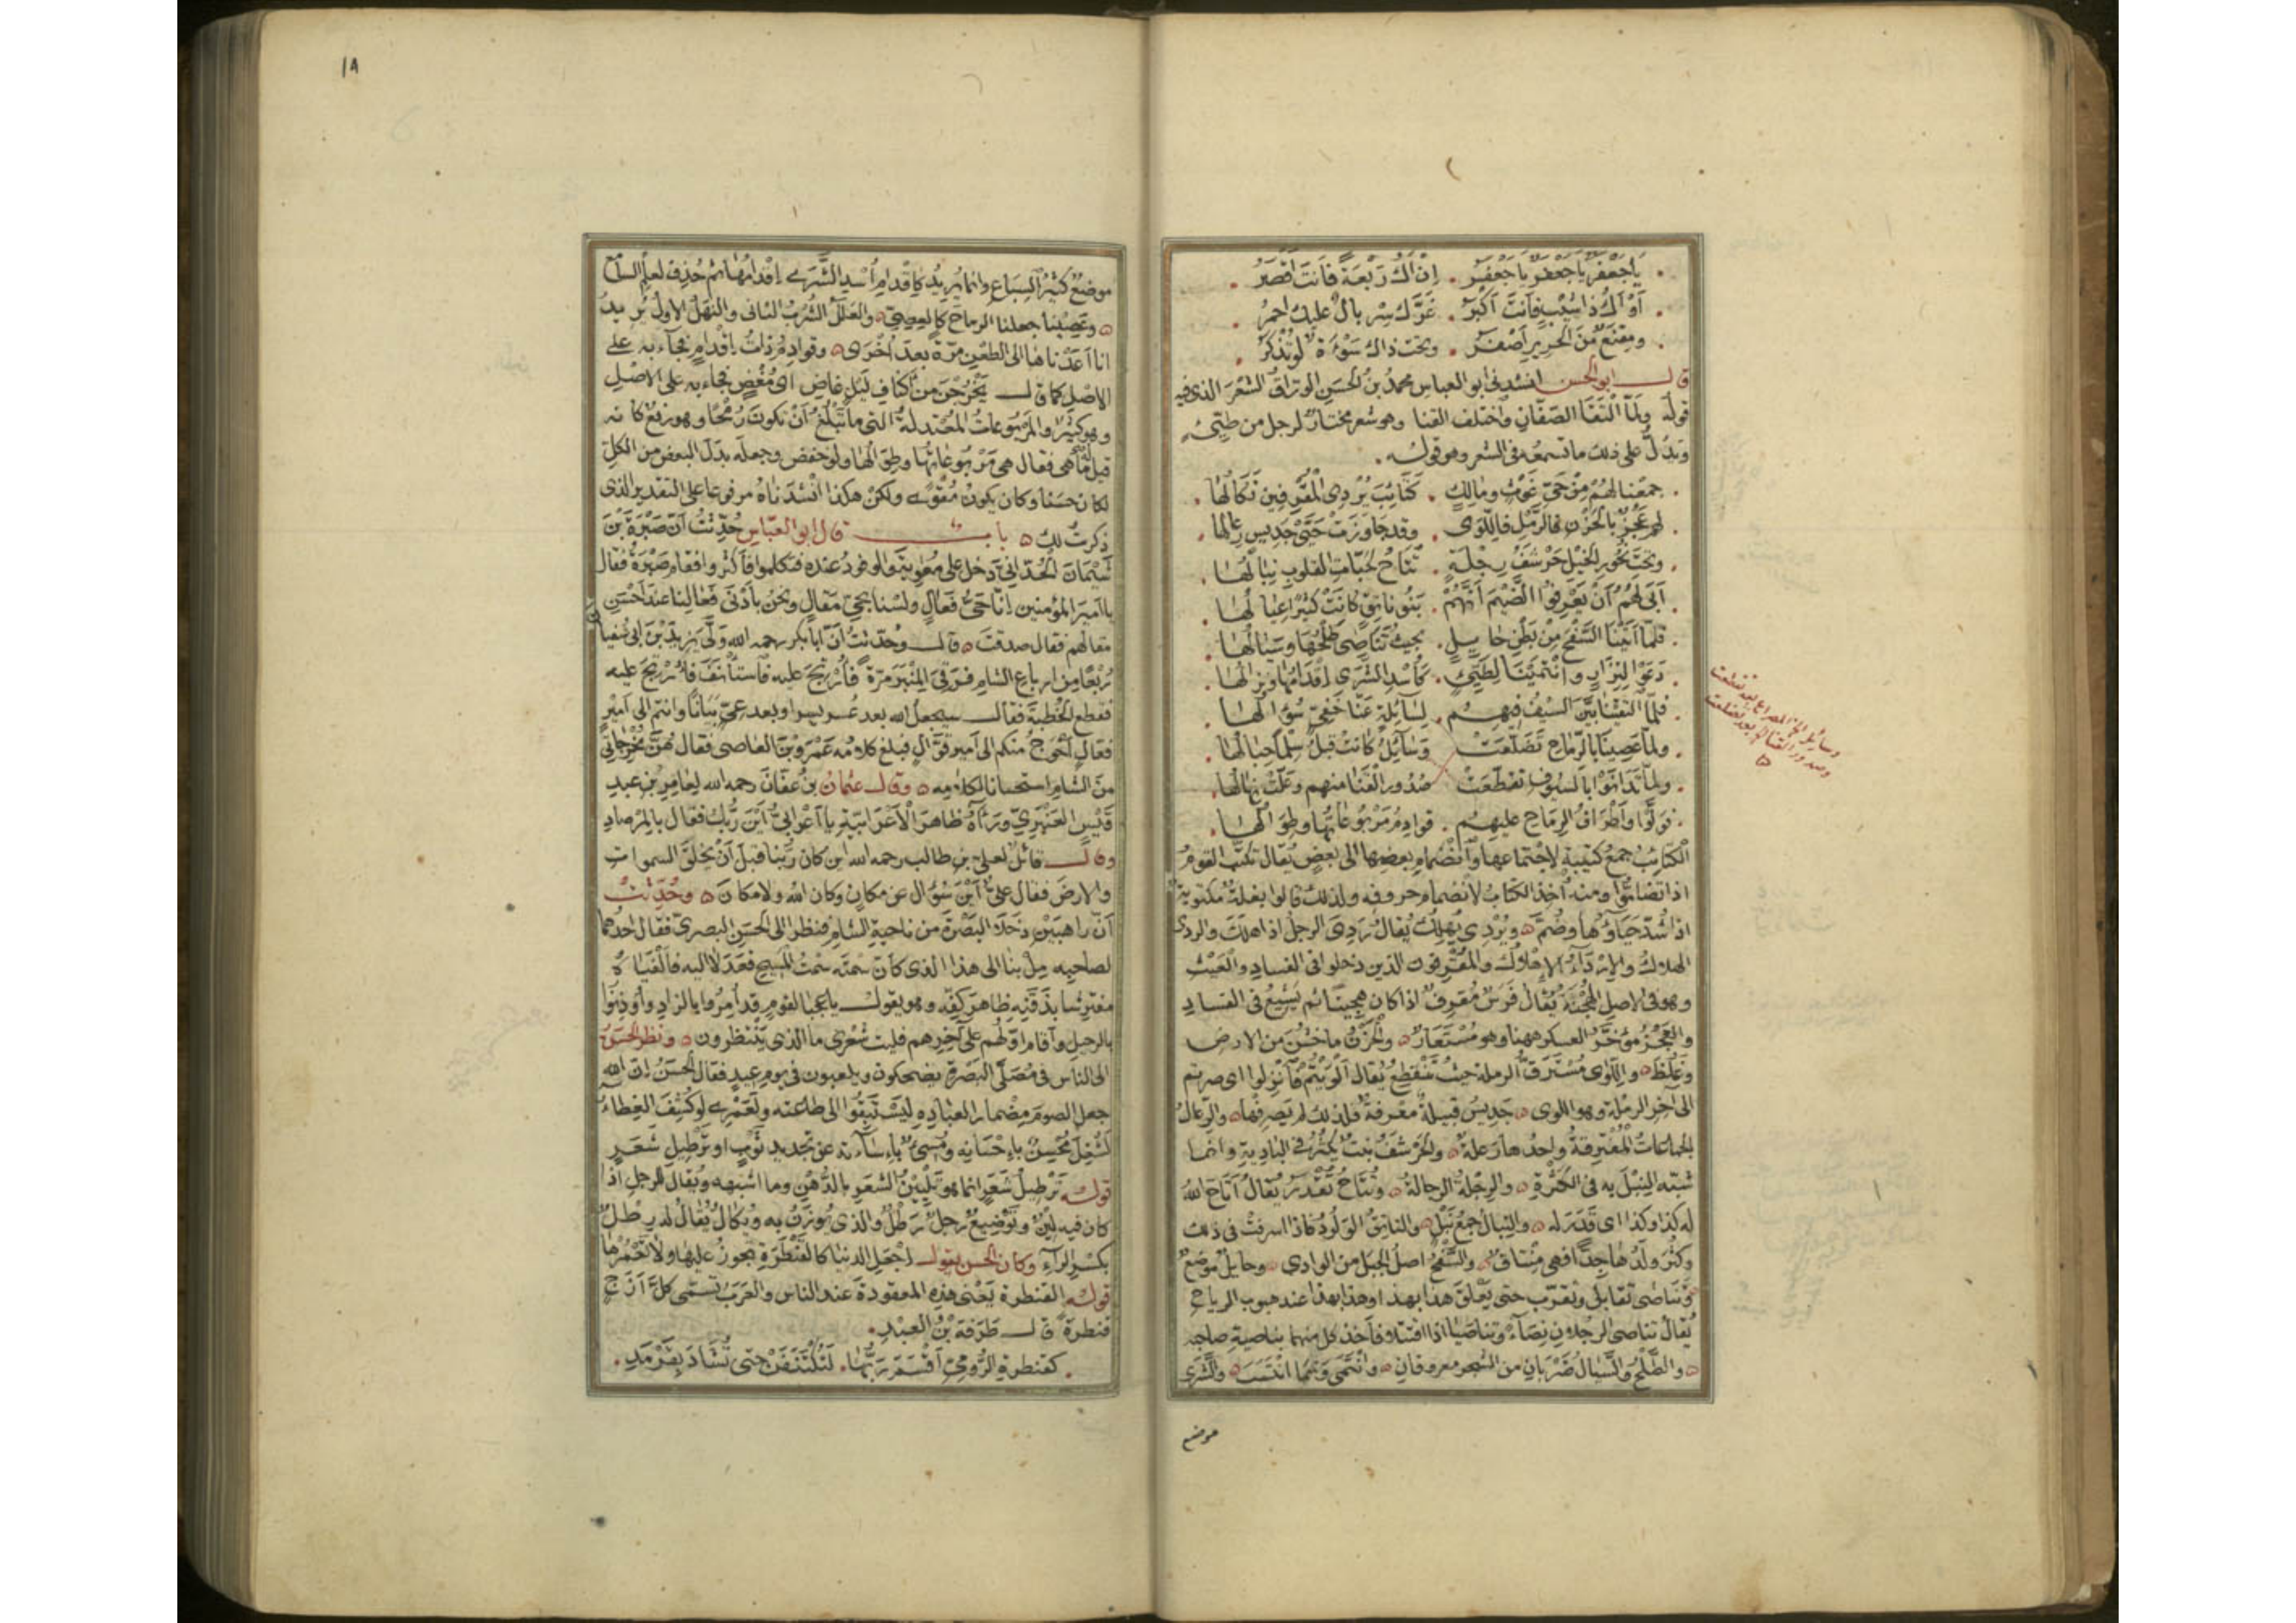 يَا جَعْفَرٌ يَا جَعْفَرٌ يَا جَعْفَرُ . إِنْ أَكُ رَبْعَةً فَأَنتَ أَقْصَرُ .
أَوْ أَكُ ذَا شَيْبٍ فَأَنتَ أَكْبَرُ . غَرَّكَ سِرْبَالٌ عليك احمرُ .
ومِقْنَعٌ مِّنَ الْحَريرِ أَصْفَرُ . وتحت ذاك سَوْءَةٌ لو تُذْكَرُ .
قال ابو الحسن انشدنى ابو العباس محمدُ بنُ الحَسَنِ الوَرّاقُ الشعرَ الذى فيه
قولهُ ولمّا الْتَقَا الصّفّانِ واختلف القنا وهو شعر مختار لرجل من طَيّئ
وتدُلُّ على ذلك ما تسمعهُ فى الشعر وهو قوله .
جمعْنا لهُمْ مِنْ حَىِّ غَوْثٍ ومالِكٍ . كَتَائِبَ يُرْدِى المُقْرِفِينَ نَكَالُهَا .
لهم عَجُزٌ بالحَزْنِ فالرّمْلِ فاللّوَى . وقد جاوَزَتْ حَيَّىْ جَدِيسَ رِعالُها .
وتحتَ نُحُورِ الخَيْلِ حَرْشَفُ رِجْلَةٍ . تُتَاحُ لحَبّاتِ القلوبِ نِبَالُهَا .
أَبَى لَهُمْ أَنْ يَعْرِفُوا الضَّيْمَ أَنَّهُمْ . بَنُو نَاتِقٍ كَانَتْ كثيرًا عِيَالُهَا .
فلمّا أتَيْنَا السَّفْحَ مِنْ بَطْنِ حَايِلٍ . بحيثُ تَنَاصَى طَلْحُهَا وسَيَالُهَا .
دَعَوْا لِنِزَارٍ وانْتَمَيْنَا لِطَيِّئٍ . كَأُسْدِ الشَّرَى إِقْدَامُهَا ونِزَالُهَا .
فلمّا التقَيْنَا بَيَّنَ السَّيْفُ فيهِم . لِسَائِلَةٍ عَنَّا حَفِىٍّ سُؤَالُهَا .
ولمّا عَصِينَا بالرّماحِ تَضَلَّعَتْ وَسَائِلُ كانتْ قبلُ سِلْمًا حِبَالُهَا .
ولمّا تَدَانَوْا بالسّيوفِ تقطّعَتْ صُدُورُ القَنَا منهم وعَلَّتْ نِهَالُهَا .
فَوَلَّوْا وأَطْرَافُ الرِّمَاحِ عليهِم . قوادِمُ مَرْبُوعَاتُهَا وطِوَالُهَا .
وسائل الى المصراع بعد تقطعت
وصدور القنا الى بعد تضلعت
الكتائبُ جمعُ كتيبةٍ لاجْتماعها وانْضمامِ بعضِها الى بعضٍ يُقال تكتّبَ القومُ
اذا تضامُّوا ومنه أُخِذَ الكتابُ لانضمام حروفه ولذلك قالوا بغلةٌ مكتوبةٌ
اذا شُدَّ حَيَاؤُهَا وضُمَّ ٥ ويُرْدِى يُهلِكُ يُقالُ رَدِىَ الرجلُ اذا هلَكَ والردى
الهلاكُ والإرْدَآءُ الإهلاكُ والمُقْرِفون الذين دخلوا فى الفسادِ والعَيْثِ
وهو فى الاصل الهُجْنَةُ يُقالُ فَرَسٌ مُقرِفٌ اذا كان هجينًا ثم يَشِيعُ فى الفسادِ
والعَجُزُ مؤخَّرُ العسكر ههنا وهو مُسْتَعَارٌ ٥ والحَزْنُ ما خَشُنَ من الارض
وغَلُظَ ٥ واللّوَى مُسْتَرَقُّ الرملةِ حيثُ تَنْقَطِعُ يُقال أَلْوَيْتُمْ فَانْزِلُوا اى صرتم
الى آخِرِ الرملة وهو اللوى ٥ جَدِيسُ قبيلةٌ معْرفةٌ فلذلك لم يَصرِفْها ٥ والرِّعالُ
الجماعاتُ المُفْترِقةُ واحدُها رَعلةٌ ٥ والحَرْشَفُ نبتٌ يكثُرُ فى الباديةِ وانما
شبّه النّبْلَ به فى الكَثْرةِ ٥ والرِّجْلةُ الرجالةُ ٥ وتُتَاحُ تُقْدَرُ يُقالُ أَتَاحَ اللهُ
له كذا وكذا اى قَدَّرَ له ٥ والنِّبالُ جمعُ نَبْلٍ ٥ والناتِقُ الوَلُودُ فاذا اسرفتْ فى ذلك
وكَثُرَ ولَدُها جِدًّا فهى مِنْتاقٌ ٥ والسَّفْحُ اصلُ الجبل من الوادى ٥ وحايلٌ موضعٌ
وتَنَاصَى تقابَلُ وتقرّب حتى يَعْلَقَ هذا بهذا وهذا بهذا عند هبوب الرياح
يُقالُ تناصى الرجلانِ نِصَآءً وتناصَيَا اذا اقتتلا فأخذ كل منهما بناصيةِ صاحبه
٥ والطَّلْحُ والسَّيالُ ضَرْبَانِ من الشجر معروفانِ ٥ وانْتَمَى ونَمَا انْتَسَبَ ٥ والشَّرَى
موضع
١٨
موضعٌ كثيرُ السِّباعِ وانما يُريدُ كإقْدامِ أُسْدِ الشَّرَى إقْدامُها ثم حُذِف لعلمِ السامع
٥ وعَصِينا جعلنا الرماحَ كالعِصِىِّ ٥ والعَلَلُ الشُّرْبُ الثانى والنَّهَلُ الاولُ يُريدُ
انا أَعَدْناها الى الطعْنِ مرّةً بعدَ أُخْرَى ٥ وقوادِمُ ذاتُ إقْدامٍ فجآء به على
الاصلِ كما قال يَخْرُجْنَ مِنْ أكنافِ لَيْلٍ غاضِ اى مُغْضٍ فجاء به على الاصلِ
وهو كثيرٌ والمَرْبُوعاتُ المُعْتدلةُ التى ما تَبْلُغُ أنْ تكونَ رُمْحًا وهو رفعٌ كانه
قيل له ما هى فقال هى مَرْبُوعاتُها وطِوَالُها ولو خفض وجعلَه بدَلَ البعضِ من الكلِّ
لكان حَسَنًا وكان يكونُ مُقْوًى ولكنْ هكذا أَنْشَدَنَاهُ مرفوعا على التقدير الذى
ذكرتُ لك ٥ باب قال ابو العبّاس حُدِّثْتُ أنّ صَبْرَةَ بْنَ
شَيْمَانَ الحُدّانىَّ دَخلَ على مُعٰوِيةَ والوفودُ عنده فتكلموا فأكْثَروا فقام صَبْرَةُ فقال
يا اميرَ المؤمنين إنّا حَىُّ فَعَالٍ ولسْنا بحَىِّ مَقالٍ ونحن بأدْنى فَعَالِنا عندَ أحْسَنِ
مقالهم فقال صدقتَ ٥ قال وحُدّثتُ انّ ابا بكر رحمه الله وَلَّى يَزيدَ بْنَ ابى سُفيان
رُبْعًا مِن ارباعِ الشامِ فرَقِىَ المِنْبَرَ مرّةً فأُرْتِجَ عليه فاستأنفَ فأُرْتِجَ عليه
فقطع الخُطبةَ فقال سيجعلُ الله بعد عُسرٍ يسرا وبعد عِىٍّ بَيَانًا وانتم الى أميرٍ
فعّالٍ أحْوجُ منكم الى أميرٍ قَوّالٍ فبلغ كلامُه عَمْرَو بْنَ العاصى فقال هُنَّ مُخْرِجاتى
منَ الشّام استحسانا لكلامِه ٥ وقال عثمانُ بنُ عَفّانَ رحمه الله لِعامرِ بنِ عبدِ
قَيْسٍ العَنْبَرِىِّ ورَءَآهُ ظاهرَ الأَعْرَابيّةِ يا أَعْرَابىُّ أيْنَ رَبُّكَ فقال بالمِرْصادِ
وقال قائلٌ لعلىّ بن طالب رحمه الله اين كان ربُّنا قبلَ أنْ يَخلُقَ السمواتِ
والارضَ فقال علىٌّ أيْنَ سُؤالٌ عن مكانٍ وكان اللهُ ولا مكانَ ٥ وحُدِّثْتُ
أنّ راهبَيْنِ دَخَلَا البَصْرَةَ من ناحيةِ الشامِ فنظرا الى الحَسَنِ البصرىِّ فقال احدُهما
لصاحبِه مِلْ بنا الى هذا الذى كأنّ سَمْتَه سَمْتُ المسيحِ فعَدَلا اليه فألْفَياه
مفترِشا بذَقَنِه ظاهرَ كفِّه وهو يقول يا عجبا لقومٍ قد أُمِرُوا بالزادِ وأُوذِنُوا
بالرحيلِ وأقام اوّلُهم على آخِرِهم فليت شعْرى ما الذى يَنْتظرون ٥ ونظر الحسَنُ
الى الناس فى مُصَلَّى البَصْرةِ يضحكون ويلعبون فى يوم عيدٍ فقال الحسَنُ إنّ الله
جعل الصومَ مِضْمارا لعبادِه لِيَسْتَبِقُوا الى طاعته ولَعَمْرِى لو كُشِفَ الغِطاءُ
لشُغِلَ مُحْسِنٌ بإحْسَانِه ومُسِىءٌ بإساءَته عن تجديدِ ثَوْبٍ او تَرْطيلِ شَعَرٍ
قوله تَرْطيلُ شَعَرٍ انما هو تَلْيِينُ الشعَرِ بالدُّهْنِ وما اشبهه ويُقالُ للرجلِ اذا
كان فيه لِينٌ وتَوْضِيعٌ رجلٌ رَطْلٌ والذى يُوزَنُ به ويُكالُ يُقالُ له رِطْلٌ
بكسْرِ الرآءِ وكان الحسن يقول اجْعَلِ الدنيا كالقَنْطَرةِ تجوزُ عليها ولا تَعْمُرُها
قوله القنطرة يَعْنى هذِه المعقودةَ عند الناس والعَرَبُ تُسَمّى كلَّ أَزَجٍ
قنطرةً قال طَرَفةُ بْنُ العبْدِ .
. كقنطرةِ الرُّومِىِّ أقْسَمَ رَبُّها . لَتُكْتَنَفَنْ حتى تُشَادَ بِقَرْمَدِ .